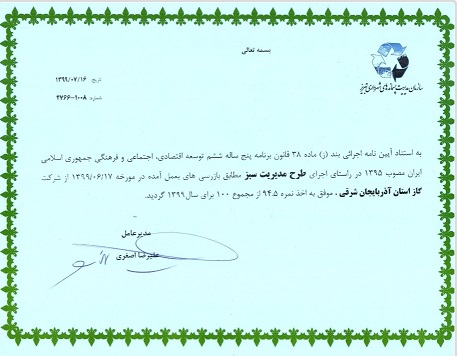 بسمه تعالی
سازمان مدیریت پسماندهای شهرداری تبریز
تاریخ: ۱۳۹۹/۰۷/۱۶
شماره: ۴۷۶۶-۱۰۰۸
به استناد آیین نامه اجرائی بند (ز) ماده ۳۸ قانون برنامه پنج ساله ششم توسعه اقتصادی، اجتماعی و فرهنگی جمهوری اسلامی
ایران مصوب ۱۳۹۵ در راستای اجرای طرح مدیریت سبز مطابق بازرسی های بعمل آمده در مورخه ۱۳۹۹/۰۶/۱۷ از شرکت
گاز استان آذربایجان شرقی ، موفق به اخذ نمره ۹۴.۵ از مجموع ۱۰۰ برای سال ۱۳۹۹ گردید.
مدیرعامل
علیرضا اصغری